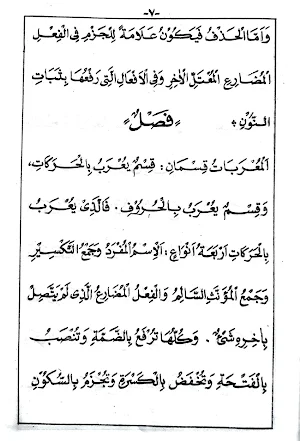 -٧-
وَاَمَّا الْحَذْفُ فَيَكُوْنُ عَلَامَةً لِلْجَزْمِ فِى الْفِعْلِ
الْمُضَارِعِ الْمُعْتَلِّ الْاٰخِرِ وَفِى الْاَفْعَالِ الَّتِىْ رَفْعُهَا بِثَبَاتِ
النُّوْنِ ؞ ﴿فَصْلٌ﴾
اَلْمُعْرَبَاتُ قِسْمَانِ : قِسْمٌ يُعْرَبُ بِالْحَرَكَاتِ،
وَقِسْمٌ يُعْرَبُ بِالْحُرُوْفِ . فَالَّذِىْ يُعْرَبُ
بِالْحَرَكَاتِ اَرْبَعَةُ اَنْوَاعٍ : اَلْاِسْمُ الْمُفْرَدُ وَجَمْعُ التَّكْسِيْرِ
وَجَمْعُ الْمُؤَنَّثِ السَّالِمُ وَالْفِعْلُ الْمُضَارِعُ الَّذِىْ لَمْ يَتَّصِلْ
بِاٰخِرِهِ شَىْءٌ . وَكُلُّهَا تُرْفَعُ بِالضَّمَّةِ وَتُنْصَبُ
بِالْفَتْحَةِ وَتُخْفَضُ بِالْكَسْرَةِ وَتُجْزَمُ بِالسُّكُوْنِ